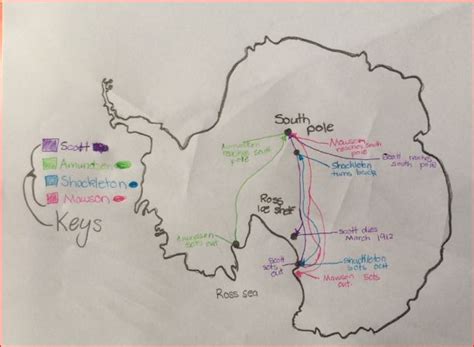 South
pole
Amundsen
reaches south
pole
Mawson
reaches south
pole
Shackleton
turns back
Scott reaches
south pole
Scott
Amundsen
Shackleton
Mawson
Keys
Ross
Ice shelf
Amundsen
sets out
Scott dies
March 1912
Scott
sets
out
Shackleton
sets out
Mawson sets
out
Ross sea